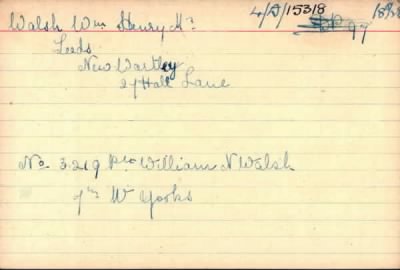 Walsh Wm Henry Mr 4/D/15318
Leeds
New Wortley
27 Hall Lane
No 3219 Pte William N Walsh
7th W Yorks